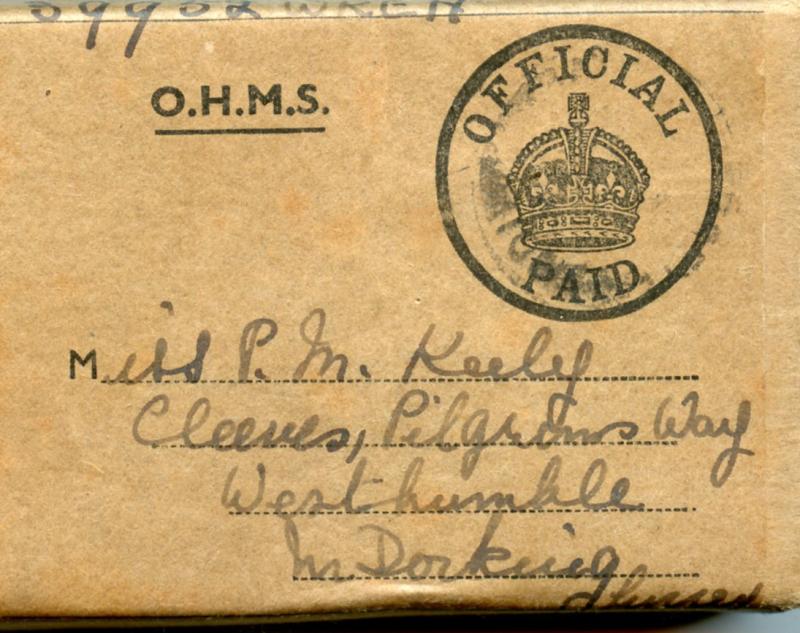 39932 WREN
O.H.M.S.
OFFICIAL
PAID
Miss P. M. Keely
Cleeves, Pilgrims Way
Westhumble
Nr Dorking
Surrey